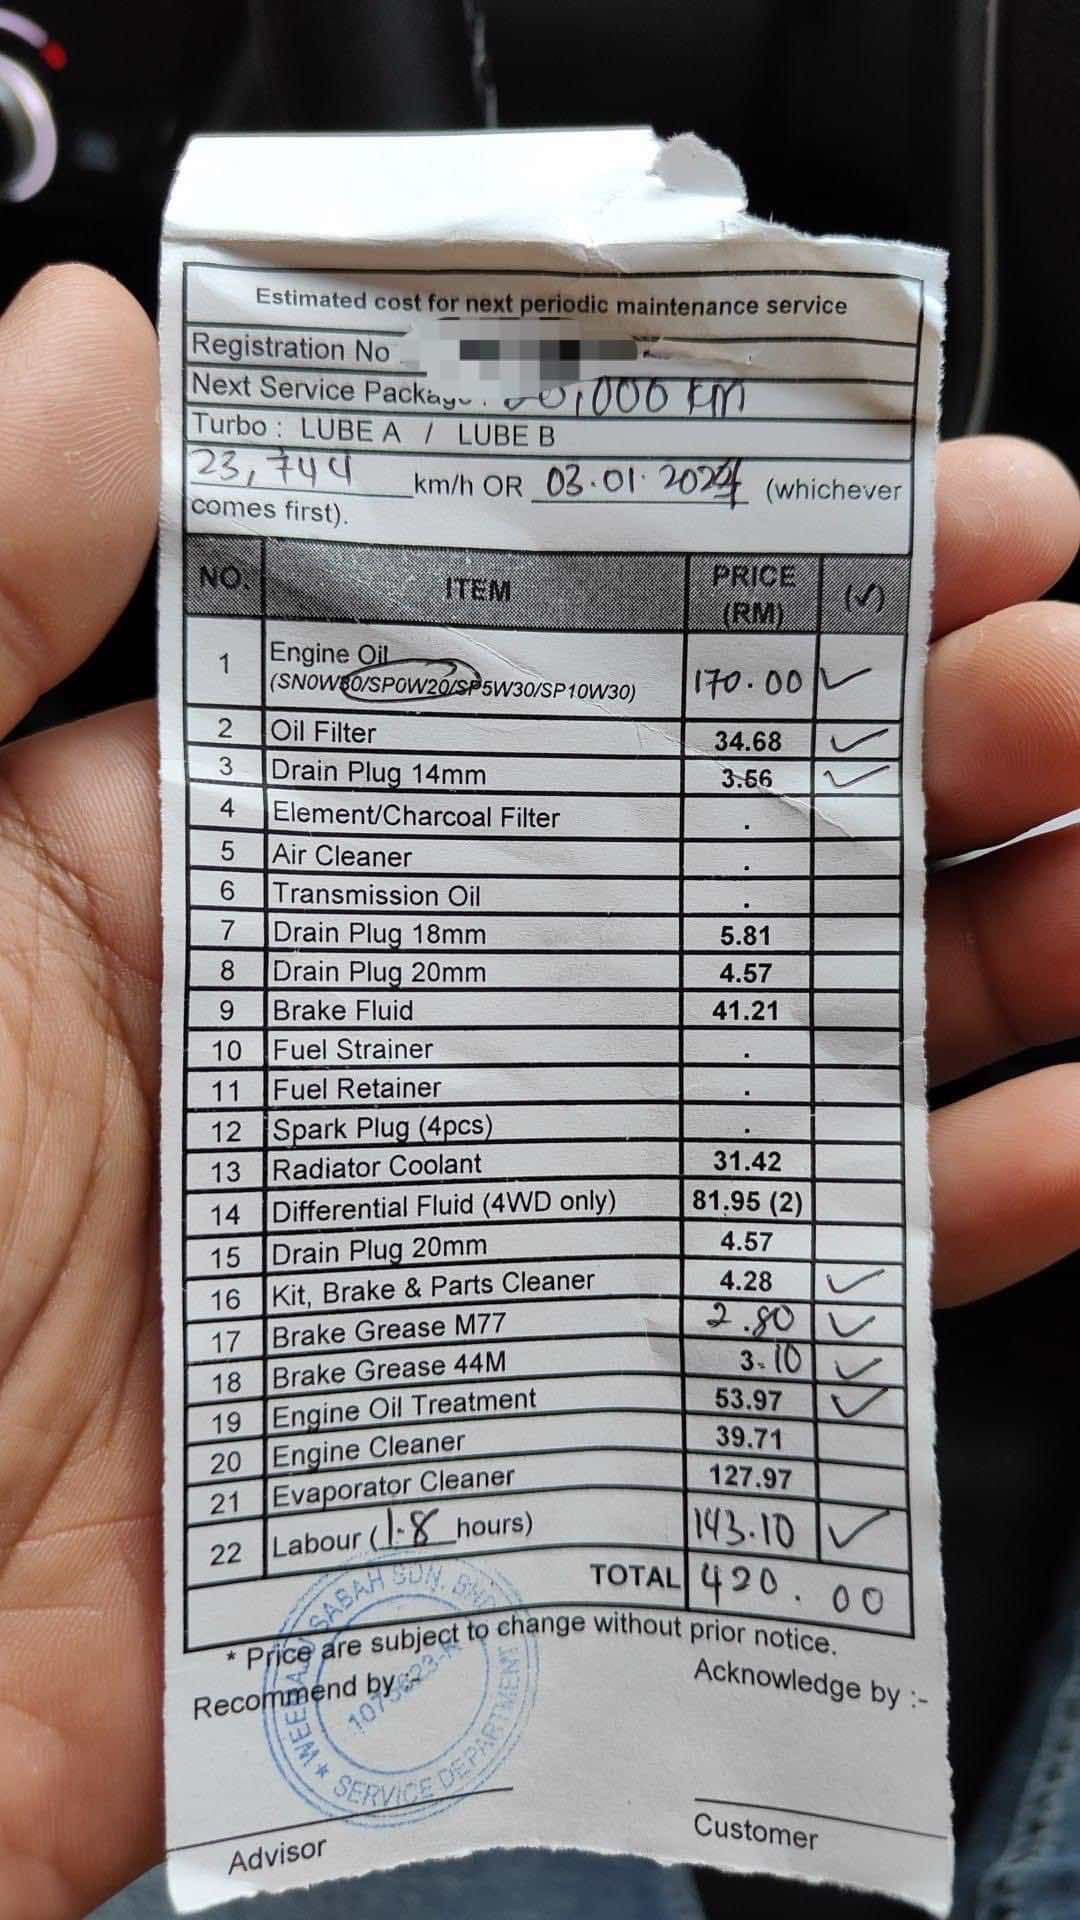 Estimated cost for next periodic maintenance service
Registration No
Next Service Package : 20,000 km
Turbo : LUBE A / LUBE B
23,744 km/h OR 03.01.2024 (whichever
comes first).
NO. ITEM PRICE (RM) (✓)
1 Engine Oil (SN0W30/SP0W20/SP5W30/SP10W30) 170.00 ✓
2 Oil Filter 34.68 ✓
3 Drain Plug 14mm 3.56 ✓
4 Element/Charcoal Filter .
5 Air Cleaner .
6 Transmission Oil .
7 Drain Plug 18mm 5.81
8 Drain Plug 20mm 4.57
9 Brake Fluid 41.21
10 Fuel Strainer .
11 Fuel Retainer .
12 Spark Plug (4pcs) .
13 Radiator Coolant 31.42
14 Differential Fluid (4WD only) 81.95 (2)
15 Drain Plug 20mm 4.57
16 Kit, Brake & Parts Cleaner 4.28 ✓
17 Brake Grease M77 2.80 ✓
18 Brake Grease 44M 3.10 ✓
19 Engine Oil Treatment 53.97 ✓
20 Engine Cleaner 39.71
21 Evaporator Cleaner 127.97
22 Labour (1.8 hours) 143.10 ✓
TOTAL 420.00
* Price are subject to change without prior notice.
Recommend by :- Acknowledge by :-
SABAH SDN. BHD
SERVICE DEPARTMENT
Advisor Customer